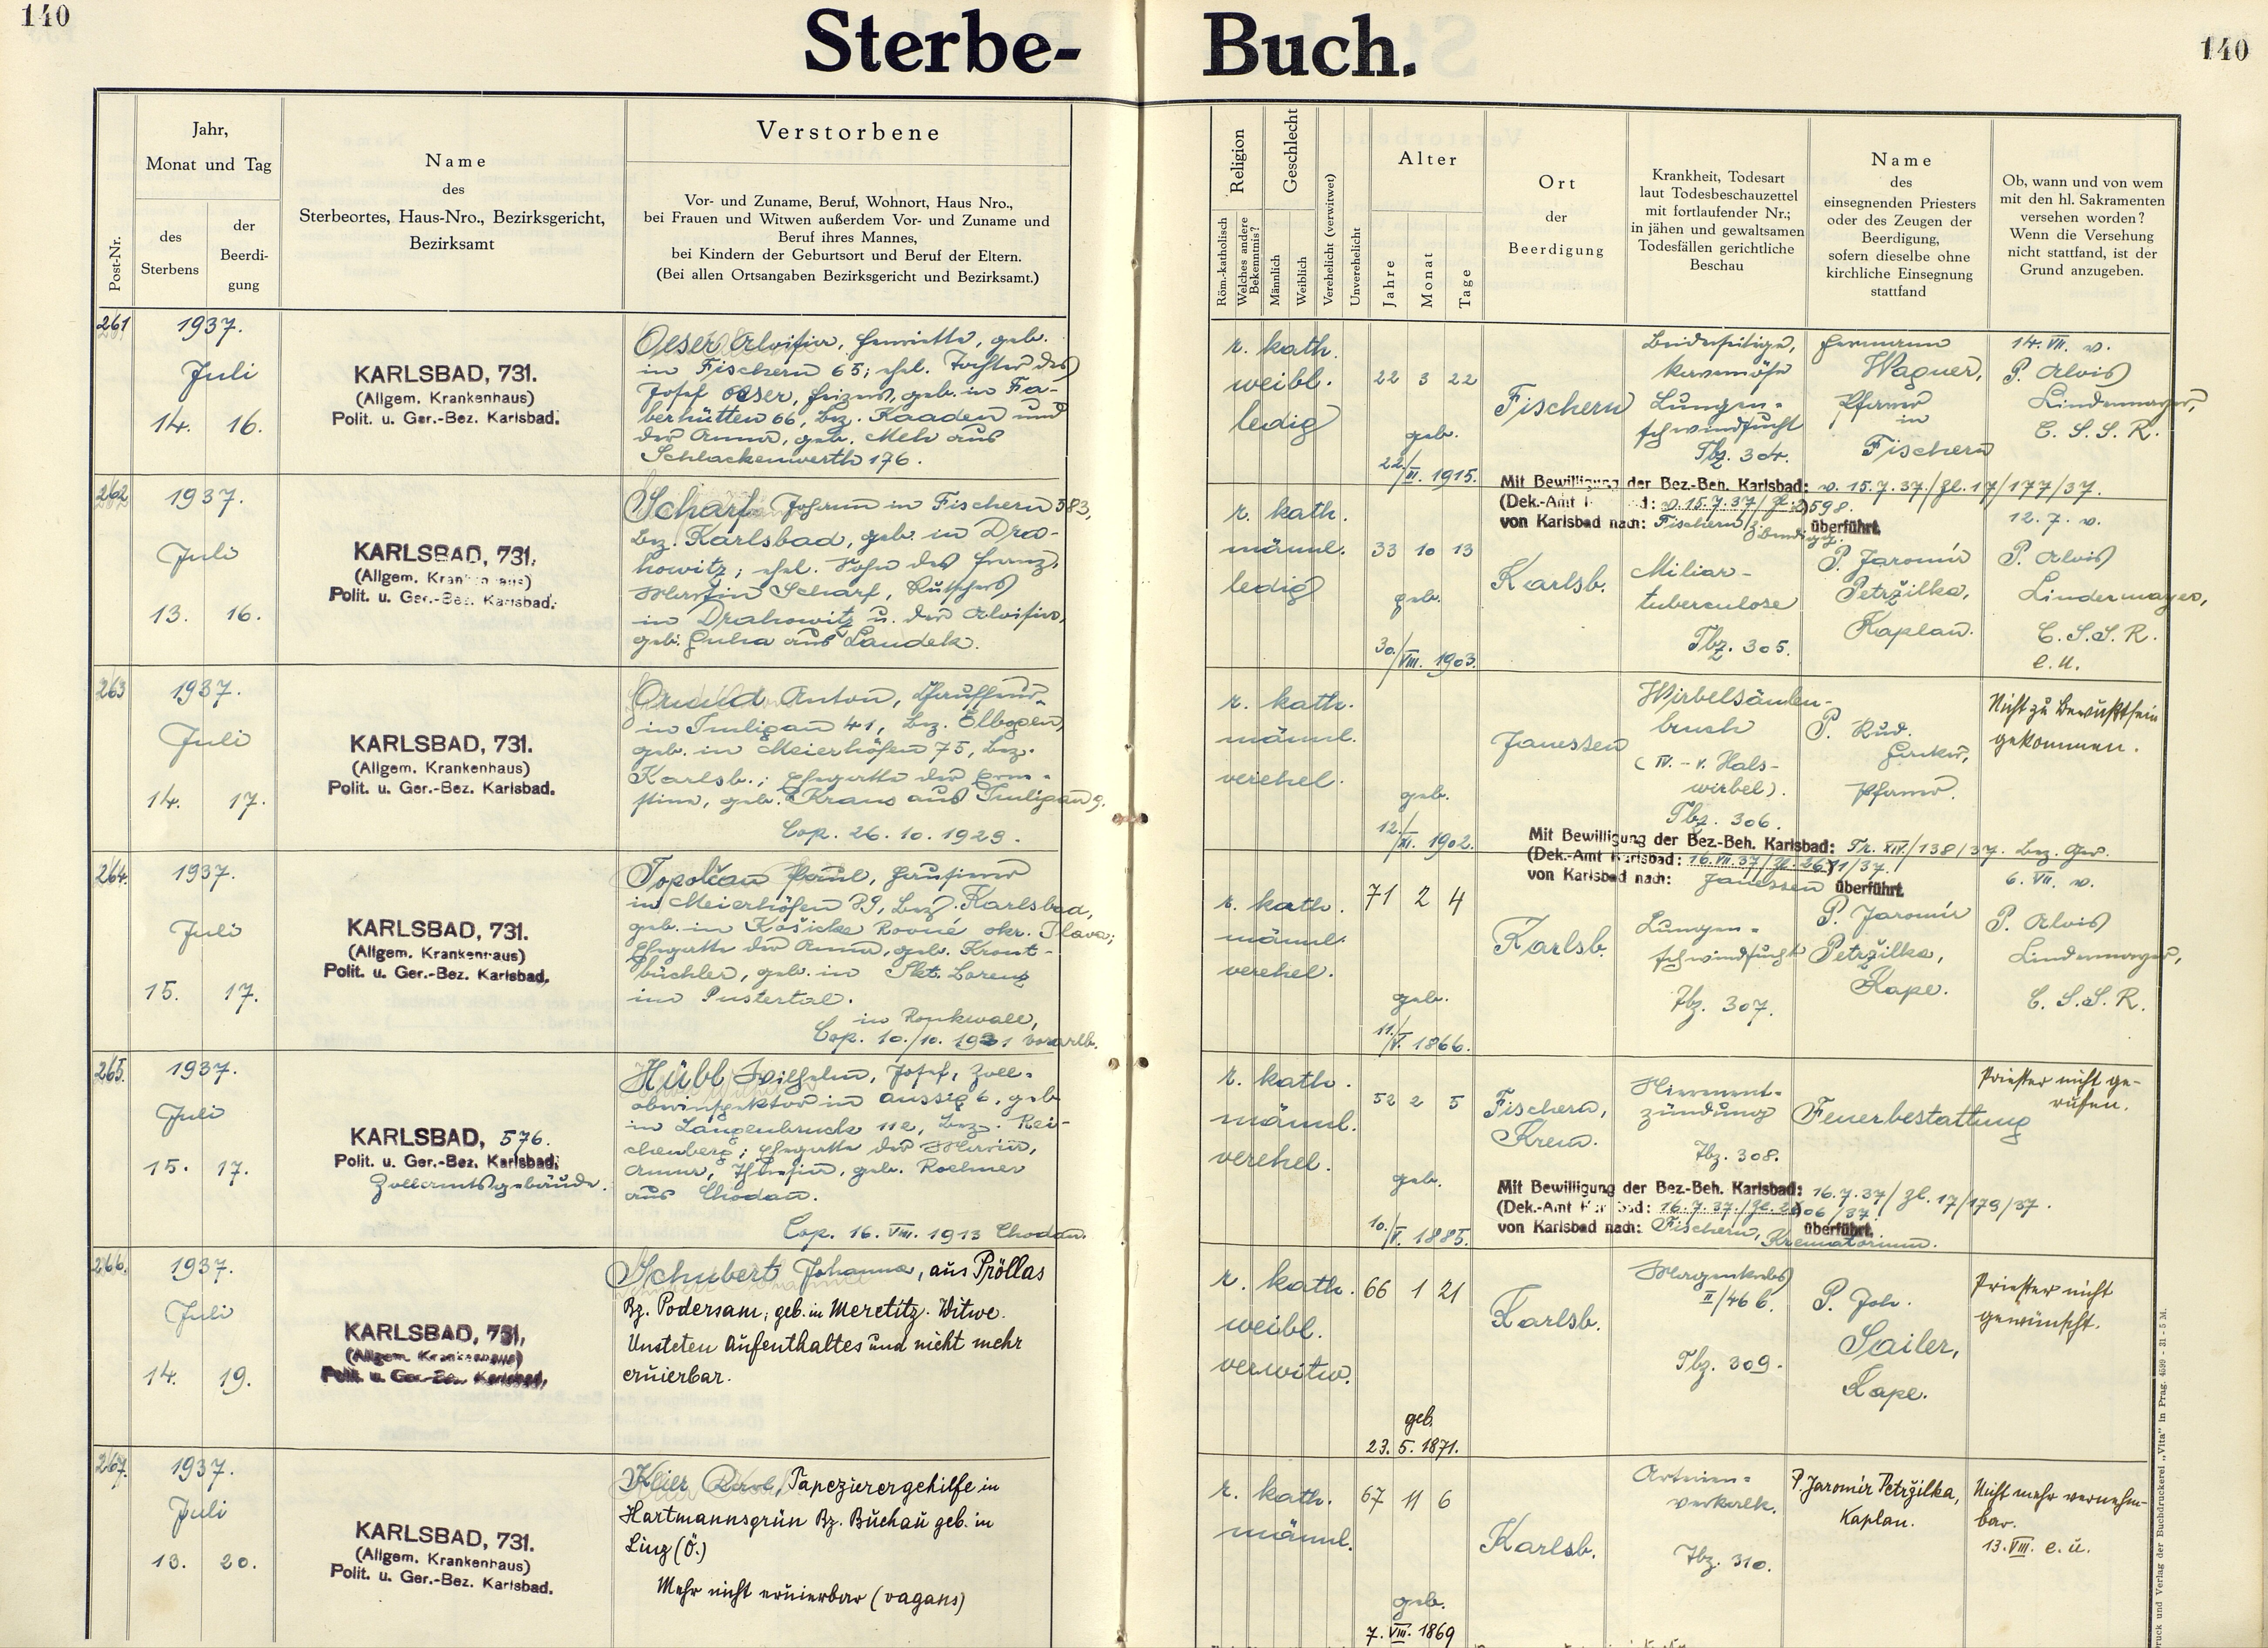 140
Sterbe-
Buch.
140
Post-Nr.
Jahr,
Monat und Tag
des
Sterbens
der
Beerdi-
gung
Name
des
Sterbeortes, Haus-Nro., Bezirksgericht,
Bezirksamt
Verstorbene
Vor- und Zuname, Beruf, Wohnort, Haus Nro.,
bei Frauen und Witwen außerdem Vor- und Zuname und
Beruf ihres Mannes,
bei Kindern der Geburtsort und Beruf der Eltern.
(Bei allen Ortsangaben Bezirksgericht und Bezirksamt.)
Religion
Röm.-katholisch
Welches andere
Bekenntnis?
Geschlecht
Männlich
Weiblich
Verehelicht (verwitwet)
Unverehelicht
Alter
Jahre
Monat
Tage
Ort
der
Beerdigung
Krankheit, Todesart
laut Todesbeschauzettel
mit fortlaufender Nr.;
in jähen und gewaltsamen
Todesfällen gerichtliche
Beschau
Name
des
einsegnenden Priesters
oder des Zeugen der
Beerdigung,
sofern dieselbe ohne
kirchliche Einsegnung
stattfand
Ob, wann und von wem
mit den hl. Sakramenten
versehen worden?
Wenn die Versehung
nicht stattfand, ist der
Grund anzugeben.
261
1937.
Juli
14. 16.
KARLSBAD, 731.
(Allgem. Krankenhaus)
Polit. u. Ger.-Bez. Karlsbad.
Oeser Aloisia, Henriette, geb.
in Fischern 65; ehel. Tochter des
Josef Oeser, Heizers, geb. in Fa-
berhütten 66, Bez. Kaaden und
der Anna, geb. Mehr aus
Schlackenwerth 176.
r. kath.
weibl.
ledig
22 3 22
geb.
22./III. 1915.
Fischern
Beiderseitige,
kavernöse
Lungen-
schwindsucht
Tbz. 304.
Hermann
Wagner,
Pfarrer
in
Fischern
14. VII. v.
P. Alois
Lindermayer,
C. S. S. R.
Mit Bewilligung der Bez.-Beh. Karlsbad: v. 15.7.37/Zl.17/177/37.
von Karlsbad nach: Fischern z. Beerdigg. überführt.
262
1937.
Juli
13. 16.
KARLSBAD, 731.
(Allgem. Krankenhaus)
Polit. u. Ger.-Bez. Karlsbad.
Scharf Johann in Fischern 583,
Bez. Karlsbad, geb. in Dra-
howitz; ehel. Sohn des Franz
Martin Scharf, Kutschers
in Drahowitz u. der Aloisia,
geb. Guha aus Landek.
r. kath.
männl.
ledig
33 10 13
geb.
30./VIII. 1903.
Karlsb.
Miliar-
tuberculose
Tbz. 305.
P. Jaromir
Petržilka,
Kaplan.
12. 7. v.
P. Alois
Lindermayer,
C. S. S. R.
e. u.
263
1937.
Juli
14. 17.
KARLSBAD, 731.
(Allgem. Krankenhaus)
Polit. u. Ger.-Bez. Karlsbad.
Anton,
in Tuligau 41, Bez. Elbogen,
geb. in Meierhöfen 75, Bez.
Karlsb.; Ehegatte der Erne-
stine, geb. Kraus aus Tuligau 9.
Cop. 26. 10. 1929.
r. kath.
männl.
verehel.
geb.
12./XI. 1902.
Janessen
Wirbelsäulen-
bruch
(IV. - V. Hals-
wirbel).
Tbz. 306.
P. Rud.
Pfarrer.
Nicht zu Bewußtsein
gekommen.
Mit Bewilligung der Bez.-Beh. Karlsbad: Tr. XIV/138/37. Bez. Ger.
(Dek.-Amt Karlsbad: 16.VII.37/Zl.2671/37.
von Karlsbad nach: Janessen überführt.
264
1937.
Juli
15. 17.
KARLSBAD, 731.
(Allgem. Krankenhaus)
Polit. u. Ger.-Bez. Karlsbad.
Topolčan Paul, Hausierer
in Meierhöfen 29, Bez. Karlsbad,
geb. in Košicke Rovné okr. Ilava;
Ehegatte der Anna, geb. Kront-
büchler, geb. in Skt. Lorenz
im Pustertal.
in Rankwall,
Cop. 10./10. 1931 Vorarlb.
r. kath.
männl.
verehel.
71 2 4
geb.
11./V. 1866.
Karlsb.
Lungen-
schwindsucht
Tbz. 307.
P. Jaromir
Petržilka,
Kape.
6. VII. v.
P. Alois
Lindermayer,
C. S. S. R.
265.
1937.
Juli
15. 17.
KARLSBAD, 576.
Polit. u. Ger.-Bez. Karlsbad.
Zollamtsgebäude.
Hübl Wilhelm, Josef, Zoll-
oberinspektor in Aussig 6, geb.
in Langenbruck 112, Bez. Rei-
chenberg; Ehegatte der Maria,
Anna, Theresia, geb. Roehner
aus Chodau.
Cop. 16. VIII. 1913 Chodau.
r. kath.
männl.
verehel.
52 2 5
geb.
10./V. 1885.
Fischern,
Krem.
Hirnent-
zündung
Tbz. 308.
Feuerbestattung
Priester nicht ge-
rufen.
Mit Bewilligung der Bez.-Beh. Karlsbad: 16.7.37/Zl.17/179/37.
von Karlsbad nach: Fischern, Krematorium. überführt.
266.
1937.
Juli
14. 19.
KARLSBAD, 731,
(Allgem. Krankenhaus)
Polit. u. Ger.-Bez. Karlsbad.
Schubert Johanna, aus Pröllas
Bz. Podersam; geb. in Meretitz. Witwe.
Unsteten Aufenthaltes und nicht mehr
eruierbar.
r. kath.
weibl.
verwitw.
66 1 21
geb.
23. 5. 1871.
Karlsb.
Magenkrebs
II/46 b.
Tbz. 309.
P. Joh.
Sailer,
Kape.
Priester nicht
gewünscht.
267.
1937.
Juli
13. 20.
KARLSBAD, 731.
(Allgem. Krankenhaus)
Polit. u. Ger.-Bez. Karlsbad.
Klier Karl, Tapezierergehilfe in
Hartmannsgrün Bz. Buchau geb. in
Linz (Ö.)
Mehr nicht eruierbar (vagans)
r. kath.
männl.
67 11 6
geb.
7. VIII. 1869
Karlsb.
Arterien-
verkalk.
Tbz. 310.
P. Jaromir Petržilka,
Kaplan.
Nicht mehr vernehm-
bar.
13. VIII. e. u.
Druck und Verlag der Buchdruckerei „Vita" in Prag. 4599 - 31 - 5 M.